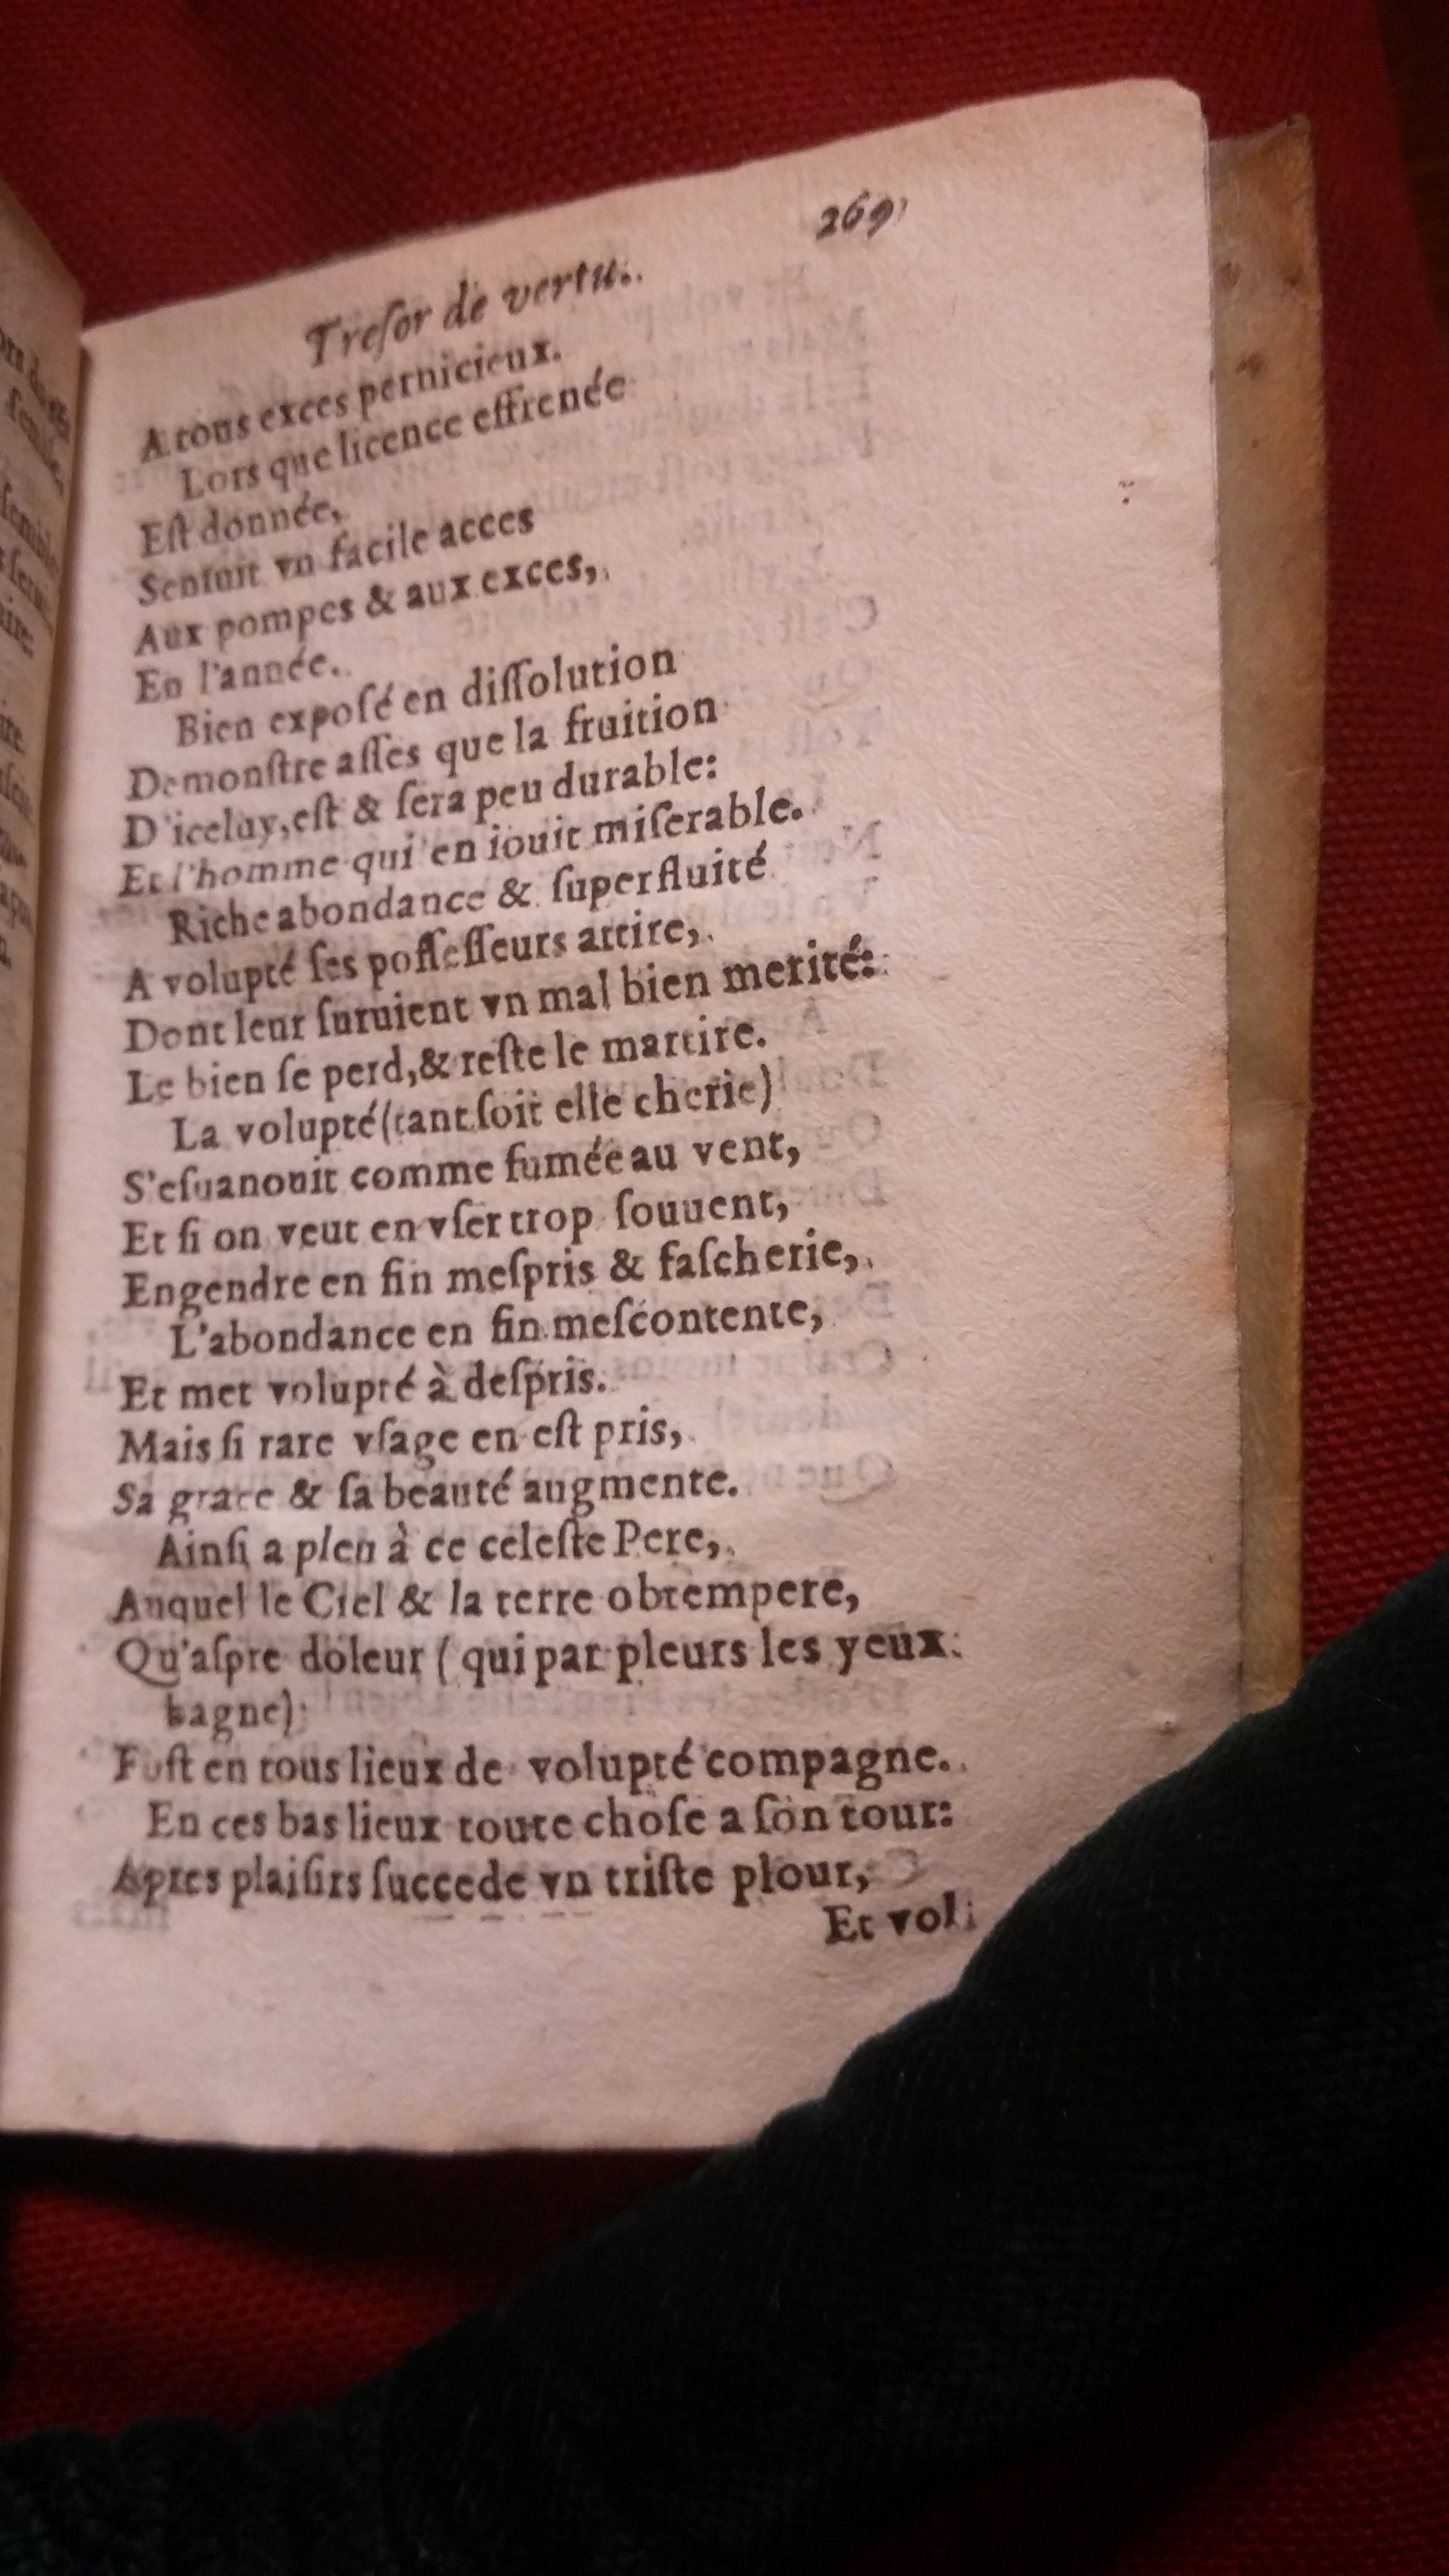 269
Treſor de vertu.
A tous exces pernicieux.
Lors que licence effrenée
Eſt donnée,
Senſuit vn facile acces
Aux pompes & aux exces,
En l'année.
Bien expoſé en diſſolution
Demonſtre aſſes que la fruition
D'iceluy, eſt & ſera peu durable:
Et l'homme qui en iouit miſerable.
Riche abondance & ſuperfluité
A volupté ſes poſſeſſeurs attire,
Dont leur ſuruient vn mal bien merité:
Le bien ſe perd, & reſte le martire.
La volupté (tant ſoit elle cherie)
S'eſuanouit comme fumée au vent,
Et ſi on veut en vſer trop ſouuent,
Engendre en fin meſpris & faſcherie,
L'abondance en fin meſcontente,
Et met volupté à deſpris.
Mais ſi rare vſage en eſt pris,
Sa grace & ſa beauté augmente.
Ainſi a pleu à ce celeſte Pere,
Auquel le Ciel & la terre obtempere,
Qu'aſpre doleur ( qui par pleurs les yeux
bagne)
Fuſt en tous lieux de volupté compagne.
En ces bas lieux toute choſe a ſon tour:
Apres plaiſirs ſuccede vn triſte plour,
Et vol